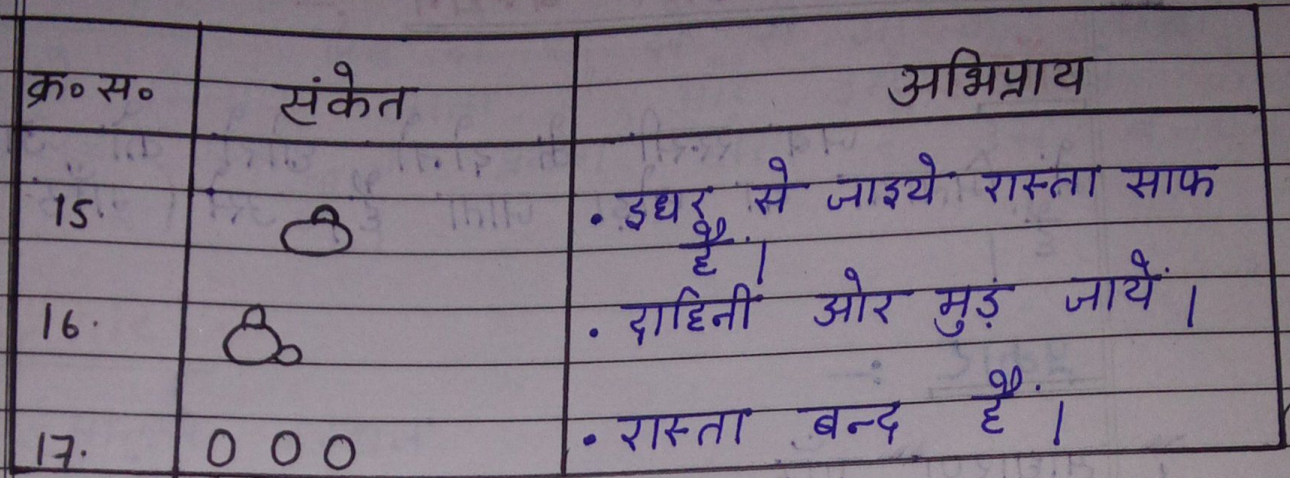 क्र॰ स॰ संकेत अभिप्राय
15. • इधर से जाइये रास्ता साफ
है।
16. • दाहिनी ओर मुड़ जायें।
17. • रास्ता बन्द है।